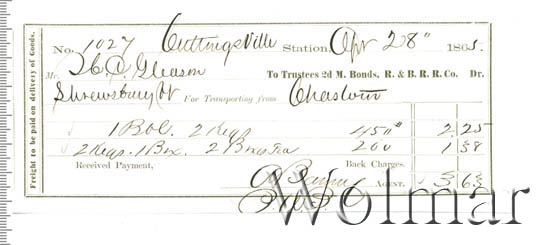 Freight to be paid on delivery of Goods.
No. 1027 Cuttingsville Station, Apr 28" 1865.
Mr. H. C. Gleason To Trustees 2d M. Bonds, R. & B. R. R. Co. Dr.
Shrewsbury Vt For Transporting from
1 Bbl. 2 Kegs 450# 2 25
2 Kegs. 1 Box. 2 Boxes Tea 200 1 38
Received Payment, Back Charges.
AGENT. 3 63
Wolmar